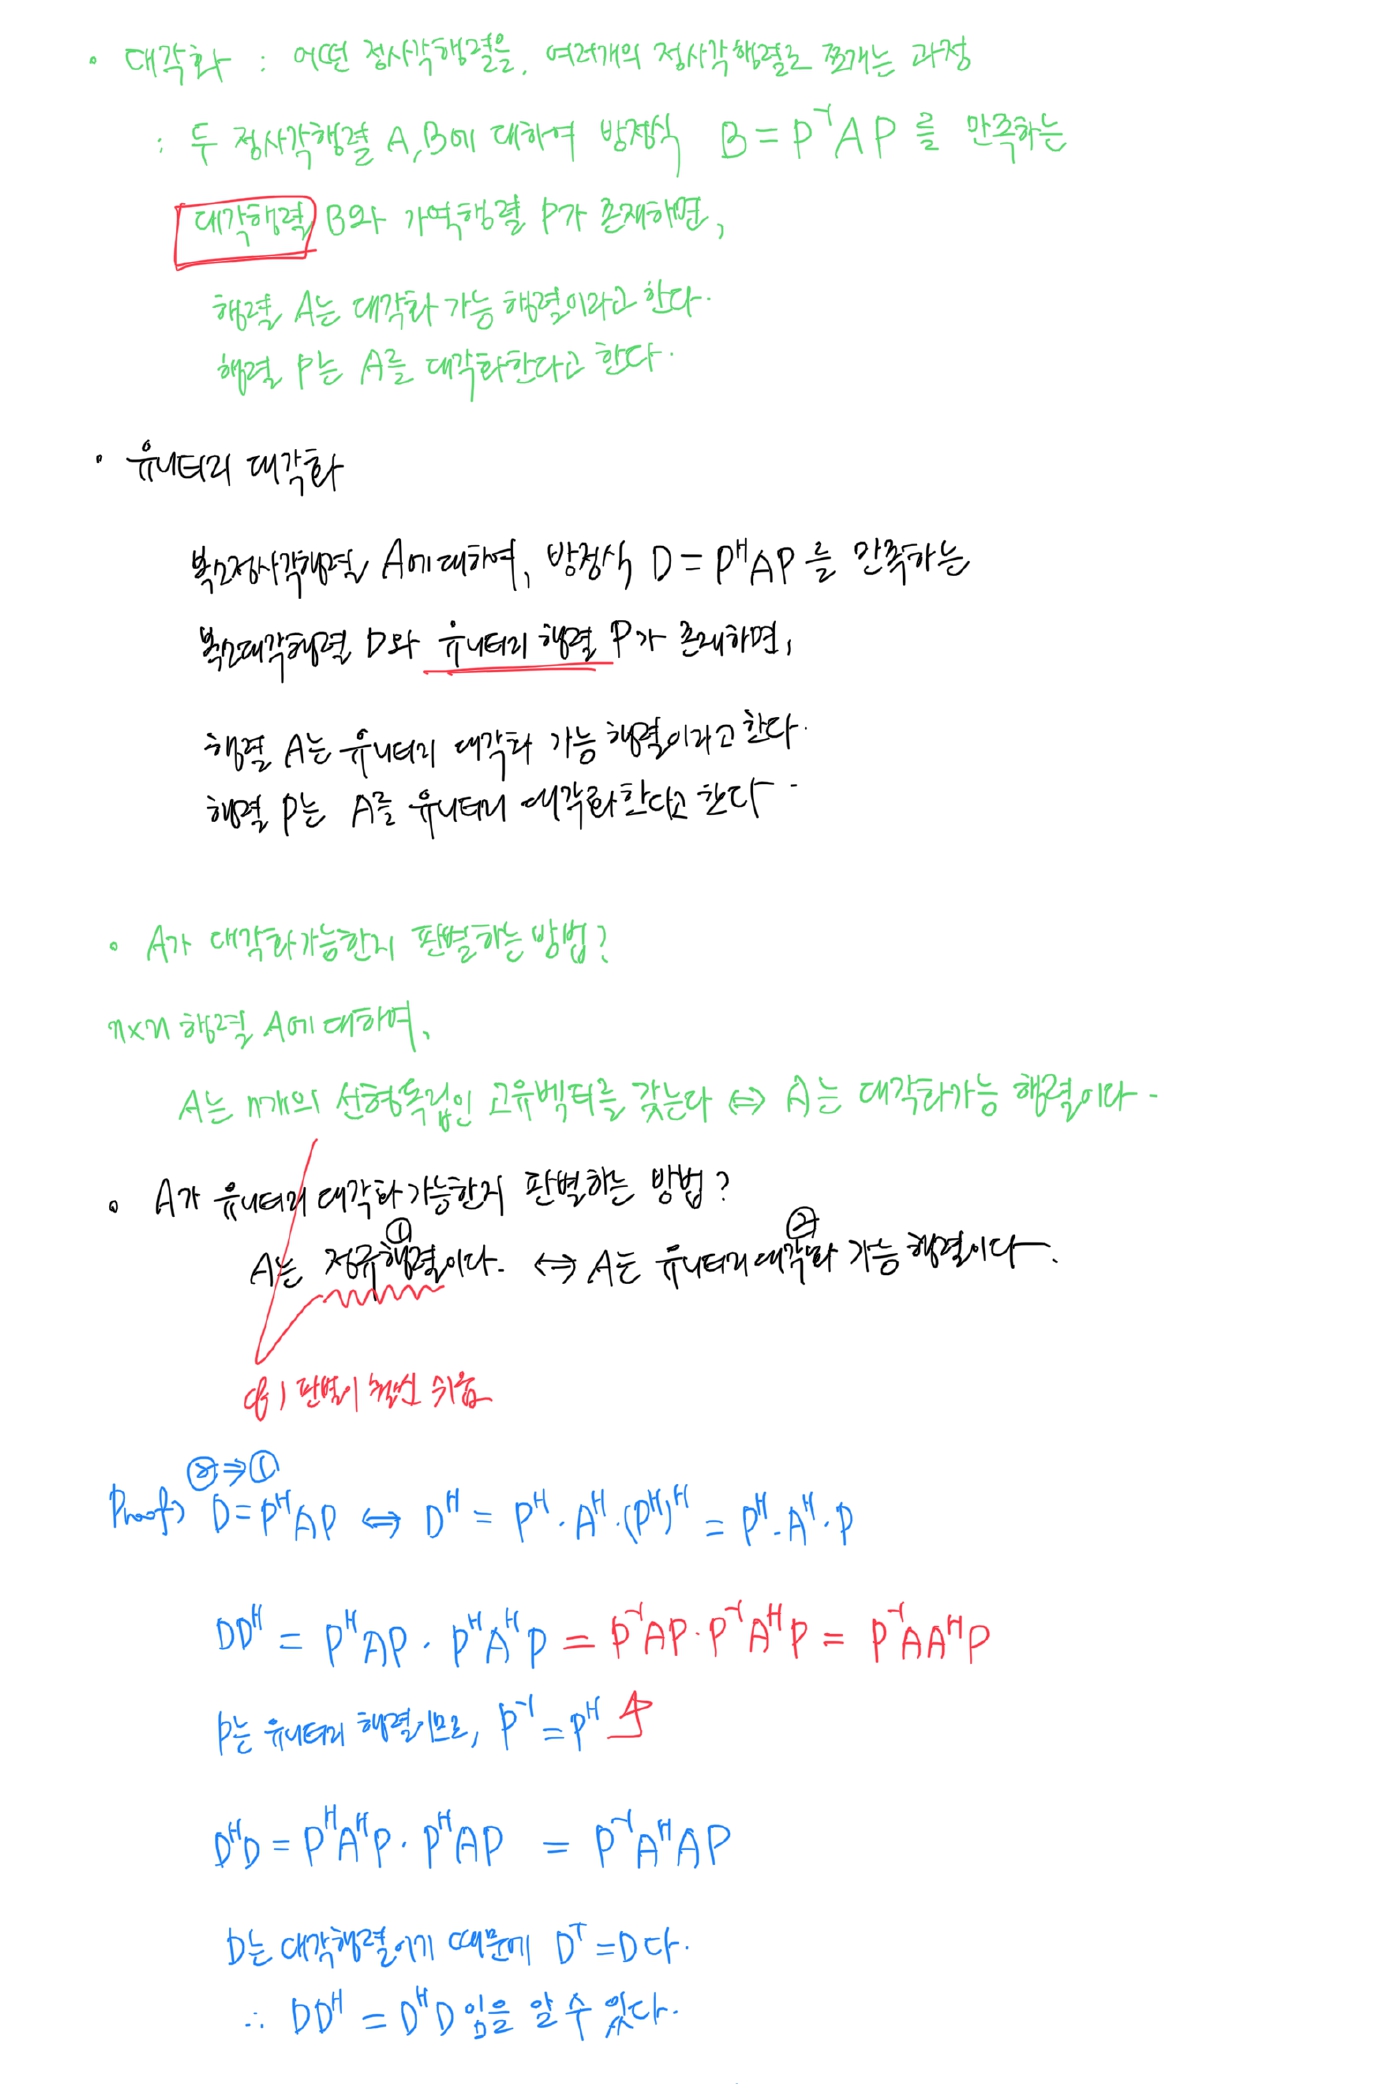 • 대각화 : 어떤 정사각행렬을, 여러개의 정사각행렬로 쪼개는 과정
: 두 정사각행렬 A,B에 대하여 방정식 B = P⁻¹AP를 만족하는
대각행렬 B와 가역행렬 P가 존재하면,
행렬 A는 대각화 가능 행렬이라고 한다.
행렬 P는 A를 대각화한다고 한다.
• 유니터리 대각화
복소정사각행렬 A에 대하여, 방정식 D = PᴴAP를 만족하는
복소대각행렬 D와 유니터리 행렬 P가 존재하면,
행렬 A는 유니터리 대각화 가능 행렬이라고 한다.
행렬 P는 A를 유니터리 대각화한다고 한다.
• A가 대각화가능한지 판별하는 방법?
n×n 행렬 A에 대하여,
A는 n개의 선형독립인 고유벡터를 갖는다 ⇔ A는 대각화가능 행렬이다.
• A가 유니터리 대각화 가능한지 판별하는 방법?
① ②
A는 정규행렬이다. ⇔ A는 유니터리 대각화 가능 행렬이다.
cf) 판별이 훨씬 쉬움
② ⇒ ①
Proof) D = PᴴAP ⇔ Dᴴ = Pᴴ·Aᴴ·(Pᴴ)ᴴ = Pᴴ·Aᴴ·P
DDᴴ = PᴴAP · PᴴAᴴP = P⁻¹AP · P⁻¹AᴴP = P⁻¹AAᴴP
P는 유니터리 행렬이므로, P⁻¹ = Pᴴ
DᴴD = PᴴAᴴP · PᴴAP = P⁻¹AᴴAP
D는 대각행렬이기 때문에 Dᵀ = D다.
∴ DDᴴ = DᴴD임을 알 수 있다.